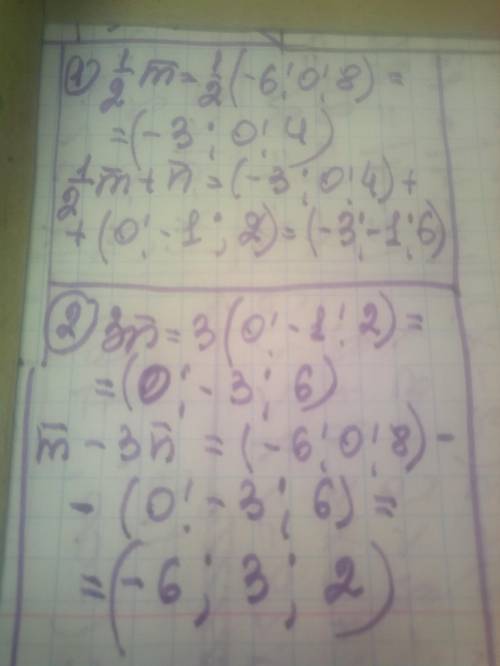 1) 1/2 m̅ = 1/2 (-6; 0; 8) =
= (-3; 0; 4)
1/2 m̅ + n̅ = (-3; 0; 4) +
+ (0; -1; 2) = (-3; -1; 6)
2) 3n̅ = 3 (0; -1; 2) =
= (0; -3; 6)
m̅ - 3n̅ = (-6; 0; 8) -
- (0; -3; 6) =
= (-6; 3; 2)